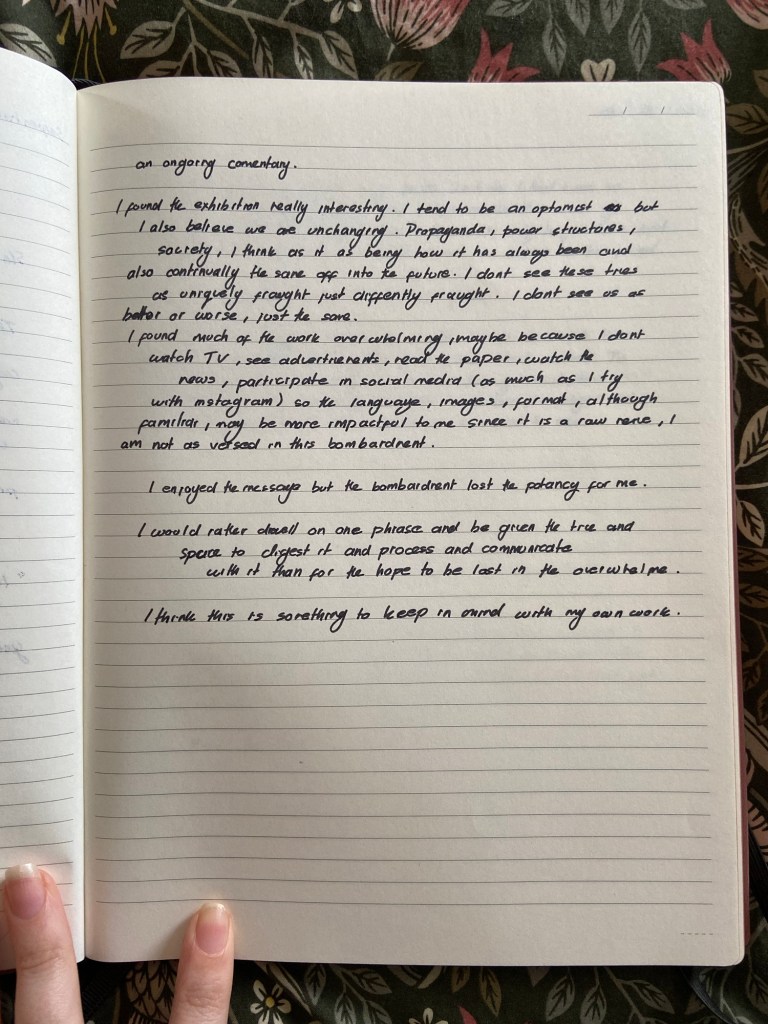 an ongoing comentary.
I found the exhibition really interesting. I tend to be an optomist but
I also believe we are unchanging. Propaganda, power structures,
society, I think as it as being how it has always been and
also continually the same off into the future. I dont see these times
as uniquely fraught just differently fraught. I dont see us as
better or worse, just the same.
I found much of the work overwhelming, maybe because I dont
watch TV, see advertisements, read the paper, watch the
news, participate in social media (as much as I try
with instagram) so the language, images, format, although
familiar, may be more impactful to me since it is a raw nerve, I
am not as versed in this bombardment.
I enjoyed the message but the bombardment lost the potancy for me.
I would rather dwell on one phrase and be given the time and
space to digest it and process and communicate
with it than for the hope to be lost in the overwhelme.
I think this is something to keep in mind with my own work.